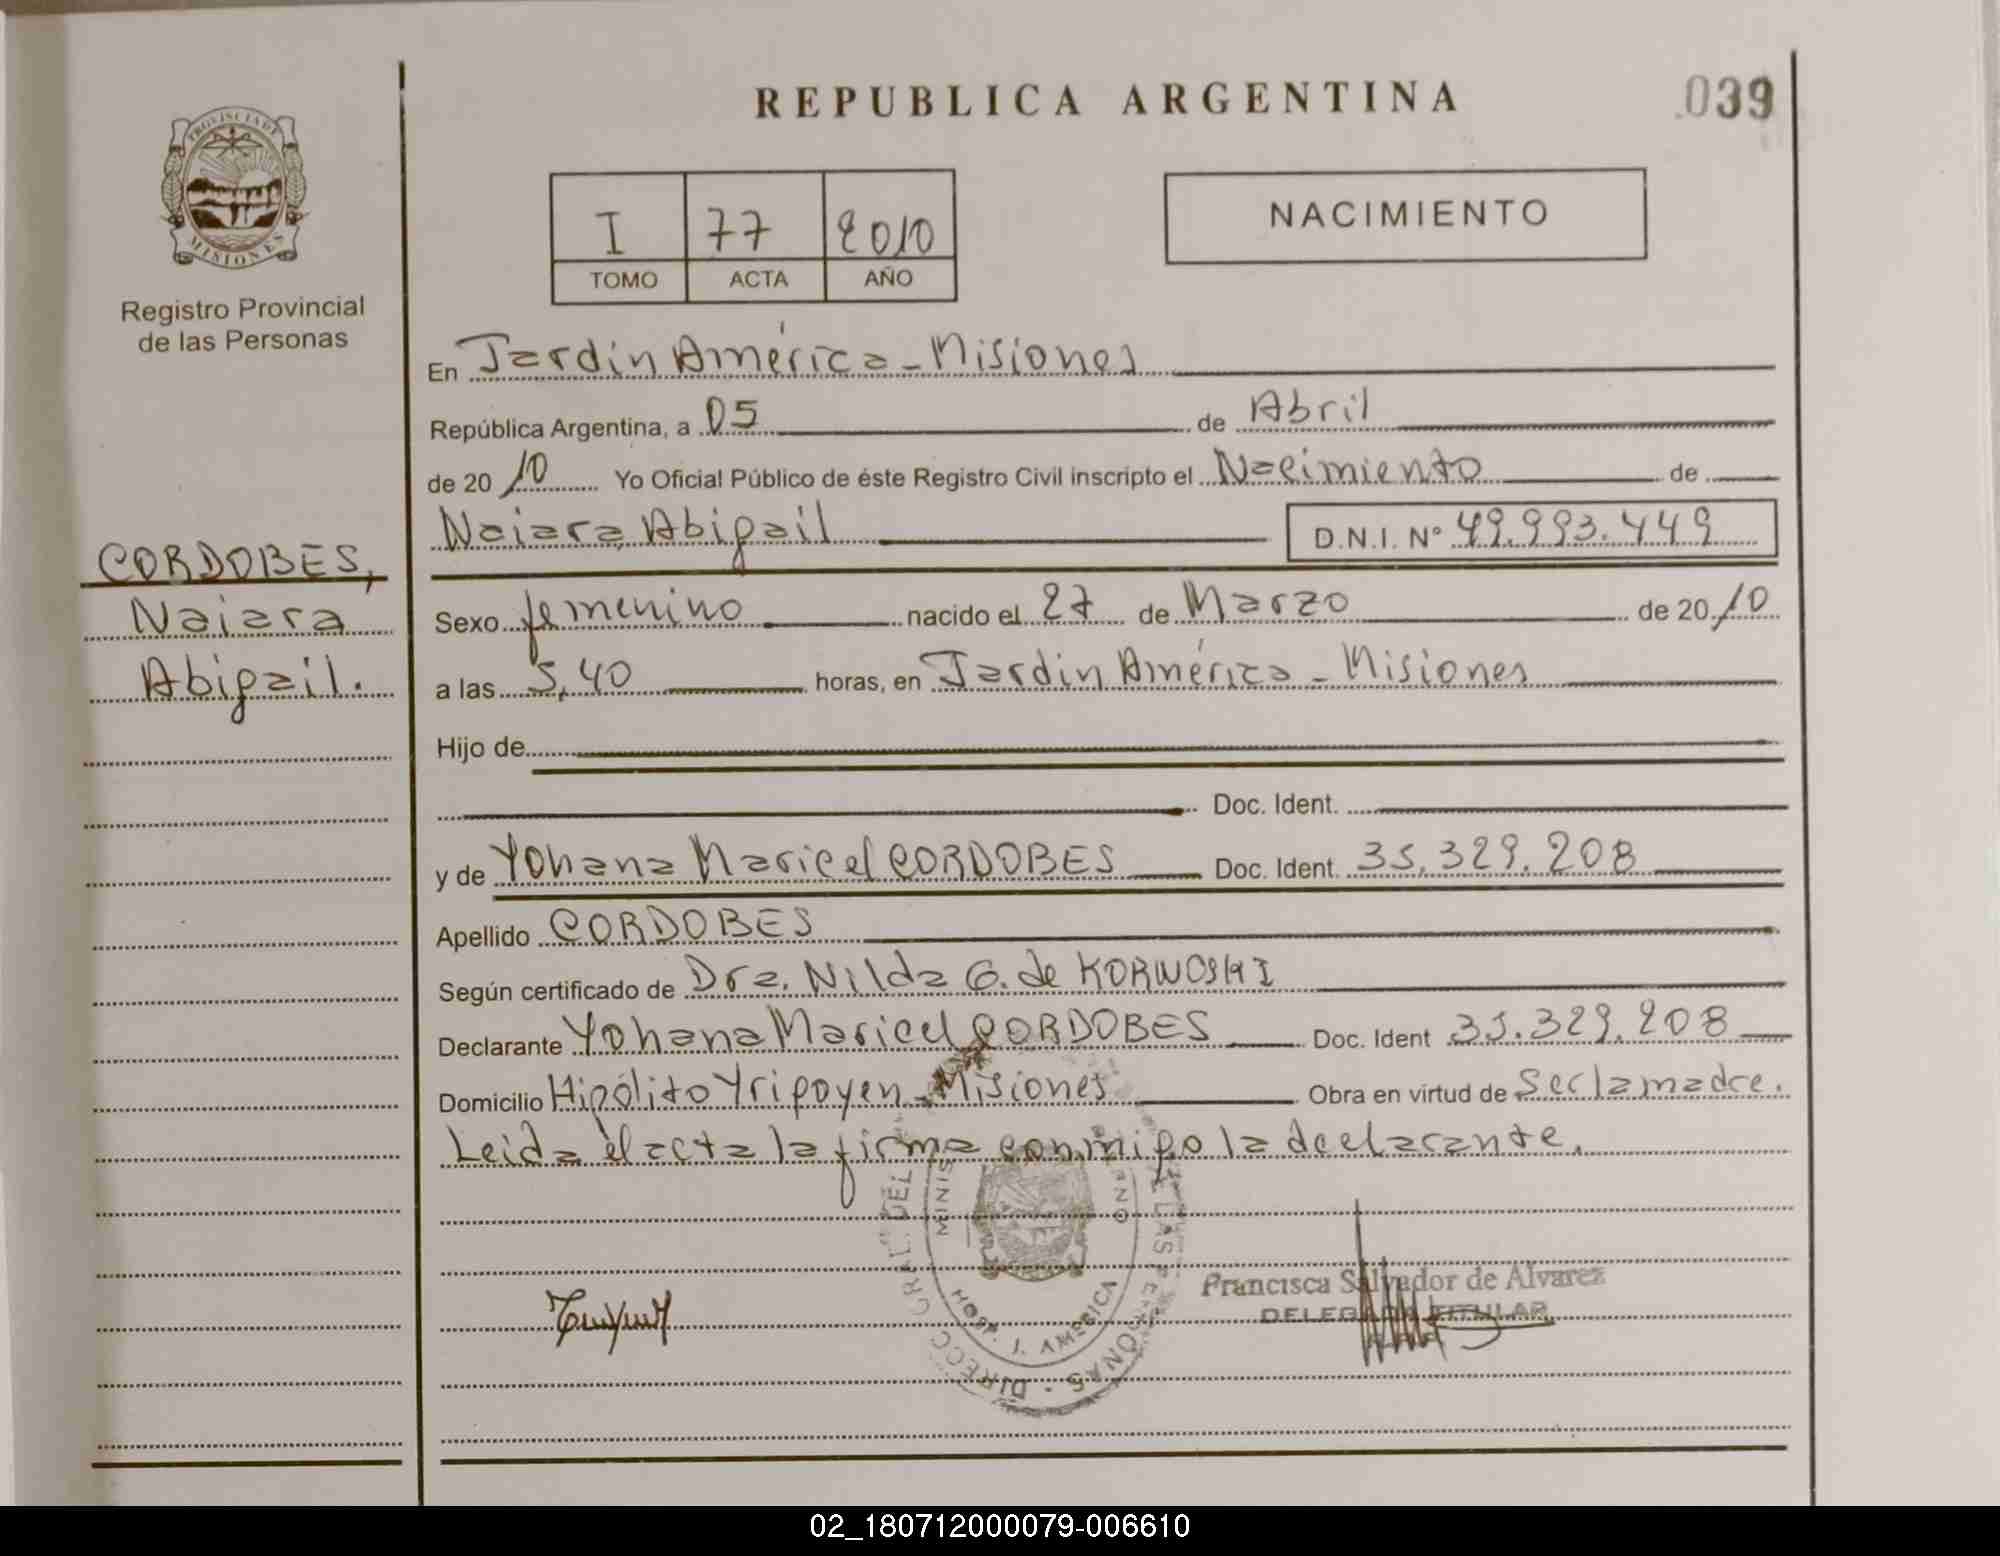 REPUBLICA ARGENTINA
039
PROVINCIA DE
MISIONES
Registro Provincial
de las Personas
I 77 2010
TOMO ACTA AÑO
NACIMIENTO
En Jardín América - Misiones
República Argentina, a 05 de Abril
de 2010 Yo Oficial Público de éste Registro Civil inscripto el Nacimiento de
Naiara Abigail D.N.I. Nº 49.993.449
CORDOBES,
Naiara
Abigail.
Sexo femenino nacido el 27 de Marzo de 2010
a las 5,40 horas, en Jardín América - Misiones
Hijo de
Doc. Ident.
y de Yohana Maricel CORDOBES Doc. Ident. 35.329.208
Apellido CORDOBES
Según certificado de Dra. Nilda G. de
Declarante Yohana Maricel CORDOBES Doc. Ident 35.329.208
Domicilio Hipólito Yrigoyen - Misiones Obra en virtud de Ser la madre.
Leida el acta la firma conmigo la declarante.
DIRECC GRAL. DEL DE LAS PERSONAS
MINIS
HOSP. J. AMERICA
Francisca Salvador de Alvarez
DELEGADA TITULAR
02_180712000079-006610